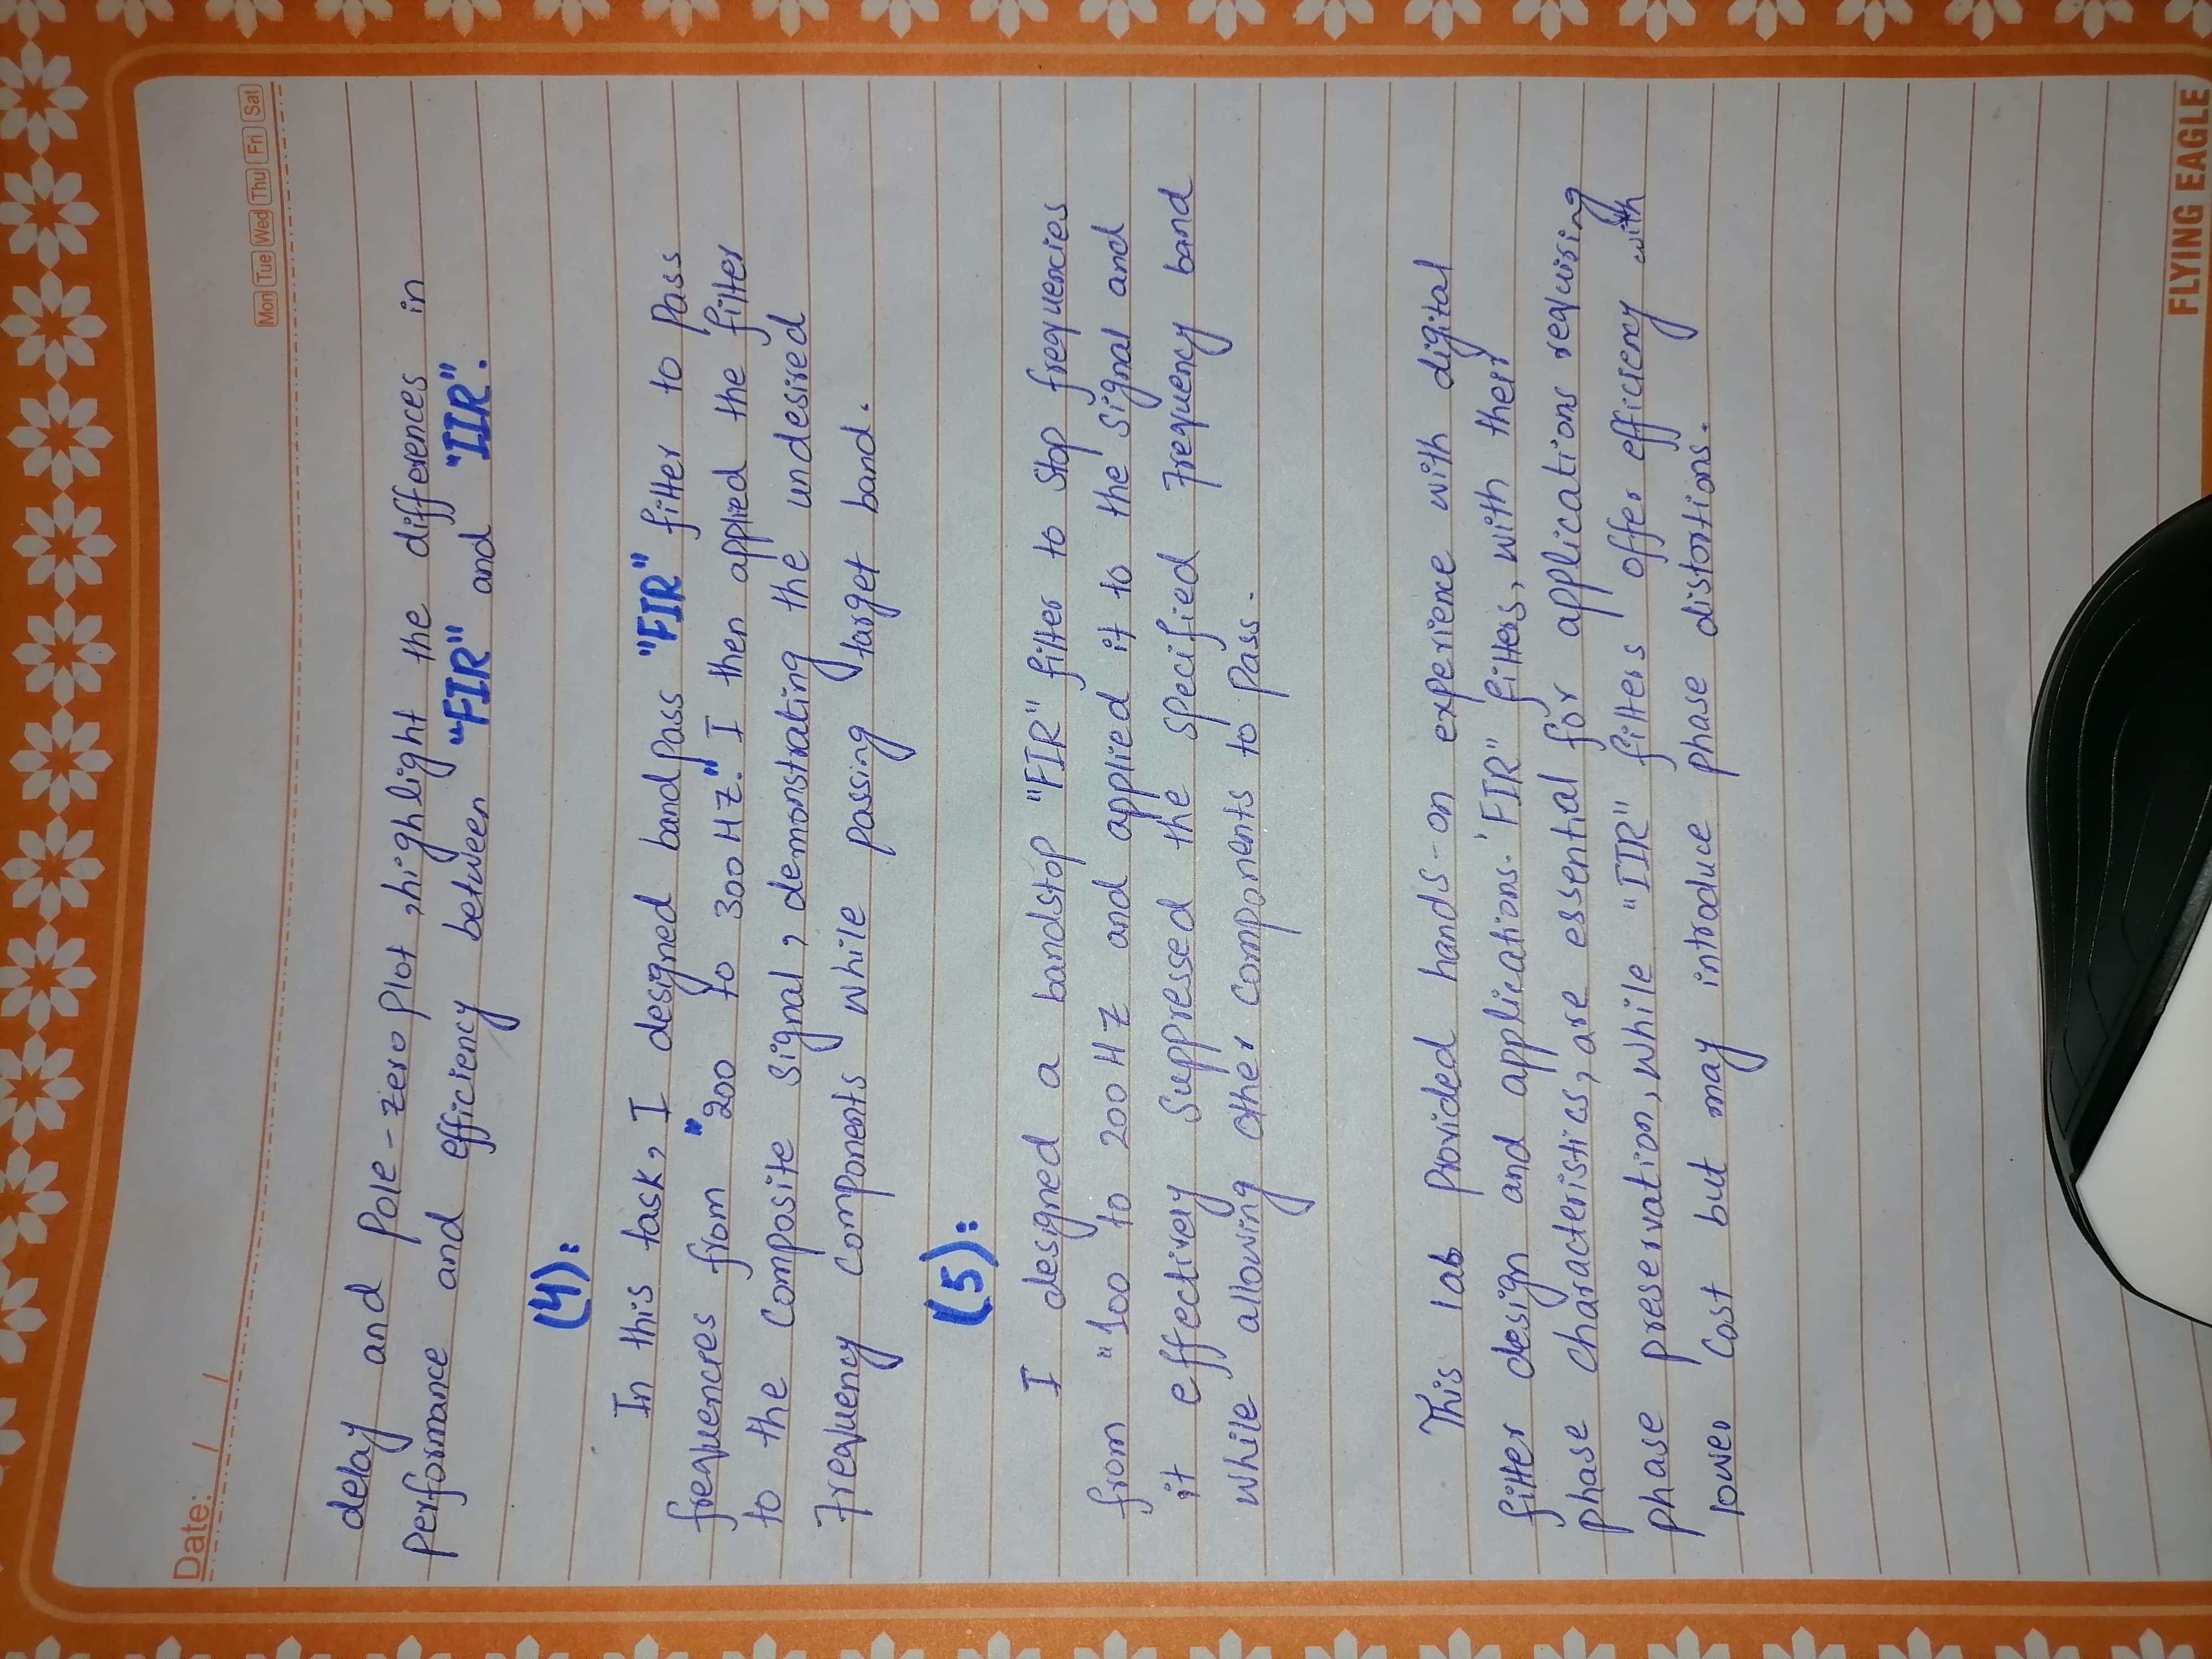 Date: / /
Mon Tue Wed Thu Fri Sat
delay and Pole-zero Plot, highlight the differences in
performance and efficiency between "FIR" and "IIR".
(4):
In this task, I designed bandpass "FIR" filter to Pass
frequencies from "200 to 300 HZ." I then applied the filter
to the Composite Signal, demonstrating the undesired
Frequency Components while passing target band.
(5):
I designed a bandstop "FIR" filter to Stop frequencies
from "100 to 200 HZ and applied it to the Signal and
it effectively Suppressed the Specified Frequency band
while allowing other Components to Pass.
This lab Provided hands-on experience with digital
filter design and applications. 'FIR" filters, with their
phase characteristics, are essential for applications requiring
phase preservation, while "IIR" filters offer efficiency with
lower Cost but may introduce phase distortions.
FLYING EAGLE